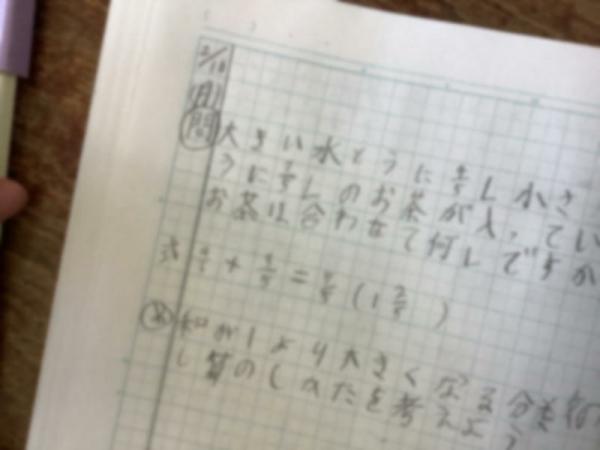 2/18
(月)
問 大きい水とうに L 小さ
うに L のお茶が入ってい
お茶は合わせて何Lですか
式 + = (1 )
め 和が1より大きくなる分数の
し算のしかたを考えよう